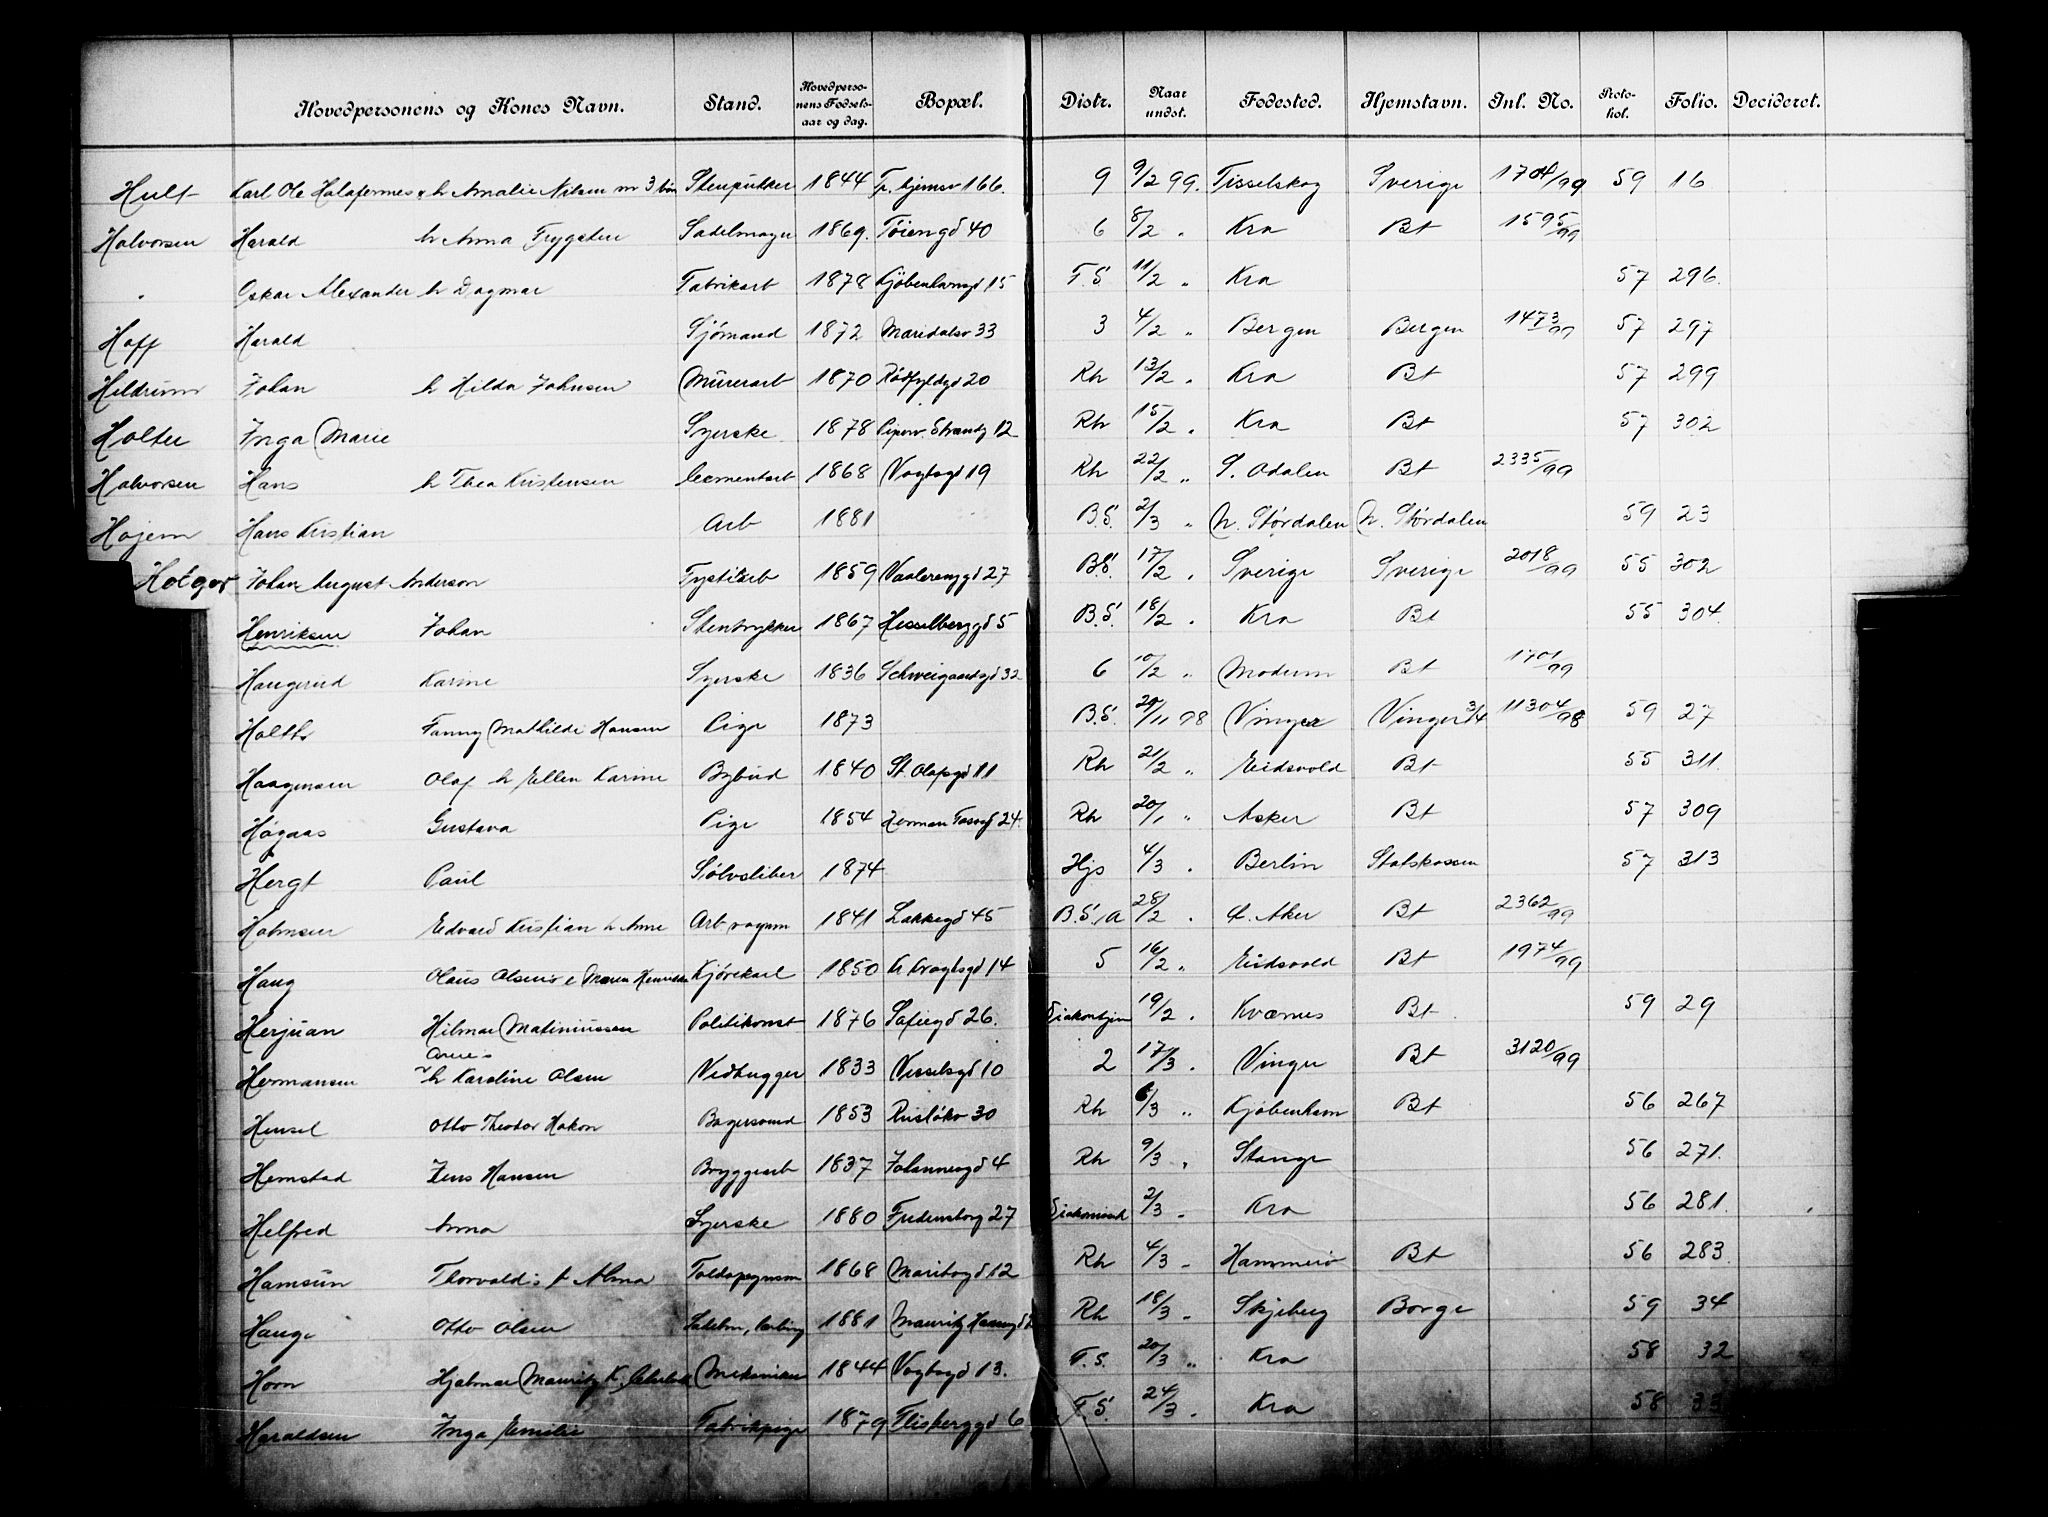 Hovedpersonens og Kones Navn. Stand. Hovedperso- nens Fødsels- aar og dag. Bopæl. Distr. Naar undst. Fødested. Hjemstavn. Inl. No. Proto- kol. Folio. Decideret.
Hult Karl Ole Holofernes h Amalie Nilsen m 3 børn Stenpukker 1844 Tr.hjemsv 166. 9 9/2 99. Tisselskog Sverige 1704/99 59 16
Halvorsen Harald h Anna Trygsten Sadelmager 1869. Tøiengd 40 6 8/2 " Kra Bt 1595/99
" Oskar Alexander h Dagmar Fabrikarb 1878 Kjøbenhavngd 15 F.S. 11/2 " Kra 57 296.
Hoff Harald Sjømand 1872 Maridalsv 33 3 4/2 " Bergen Bergen 1473/99 57 297
Hildrum Johan h Hilda Johnsen Murerarb 1870 Rødfyldgd 20 Rh 13/2 " Kra Bt 57 299
Holter Inga Marie Syerske 1878 Piperv. Strandg 12 Rh 15/2 " Kra Bt 57 302
Halvorsen Hans h Thea Kristensen Cementarb 1868 Vogtsgd 19 Rh 22/2 " S. Odalen Bt 2335/99
Hojem Hans Kristian Arb 1881 B.S. 2/3 " N. Størdalen N. Størdalen 59 23
Holger Johan August Anderson Fystikarb 1859 Vaalerenggd 27 B.S. 17/2 " Sverige Sverige 2018/99 55 302
Henriksen Johan Stentrykker 1867 Hesselberggd 5 B.S. 18/2 " Kra Bt 55 304.
Haugerud Karine Syerske 1836 Schweigaardsgd 32 6 10/2 " Modum Bt 1701/99
Holth Fanny Mathilde Hansen Pige 1873 B.S. 29/11 98 Vinger Vinger 3/4 11304/98 59 27
Haagensen Olaf h Ellen Karine Bybud 1840 St Olafsgd 11 Rh 21/2 " Eidsvold Bt 55 311.
Høgaas Gustava Pige 1854 Herman Fossgd 24. Rh 20/1 " Asker Bt 57 309
Hergt Paul Sølvsliber 1874 Hjs 4/3 " Berlin Statskassen 57 313
Holmsen Edvard Kristian h Anne Arb vognm 1841 Lakkegd 45 B.S. A 28/2 " Ø. Aker Bt 2362/99
Haug Olaus Olsen's e Maren Henriksen Kjørekarl 1850 Kr Krogsgd 14 5 16/2 " Eidsvold Bt 1974/99
Herjuan Hilmar Matiniussen Politikonst 1876 Sofiegd 26. Diakonhjem 19/2 " Kværnes Bt 59 29
Hermansen Arne's h Karoline Olsen Vedhugger 1833 Vesselsgd 10 2 17/3 " Vinger Bt 3120/99
Hensel Otto Theodor Hakon Bagersvend 1853 Rusløkv 30 Rh 6/3 " Kjøbenhavn Bt 56 267
Hemstad Jens Hansen Bryggearb 1837 Johannesgd 4 Rh 9/3 " Stange 56 271.
Helfred Anna Syerske 1880 Fredensborg 27 Diakonisseh 2/3 " Kra 56 281.
Hamsun Thorvald's h Alma Toldopsynsm 1868 Maribogd 12 Rh 4/3 " Hammerø Bt 56 283.
Hauge Otto Olsen Sadelm, lærling 1881 Mauritz Hansgd 2 Rh 18/3 " Skjeberg Borge 59 34
Horn Hjalmar Mauritz K. Mekaniker 1844 Vogtsgd 13. F.S. 20/3 " Kra 58 32
Haraldsen Inga Emilie Fabrikpige 1879 Flisberggd 6 F.S. 24/3 " Kra 58 33